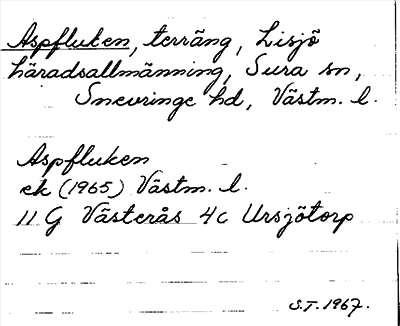 Aspfluken, terräng, Lisjö
häradsallmänning, Sura sn,
Snevringe hd, Västm. l.
Aspfluken
ek (1965) Västm. l.
11 G Västerås 4c Ursjötorp
S.T. 1967.